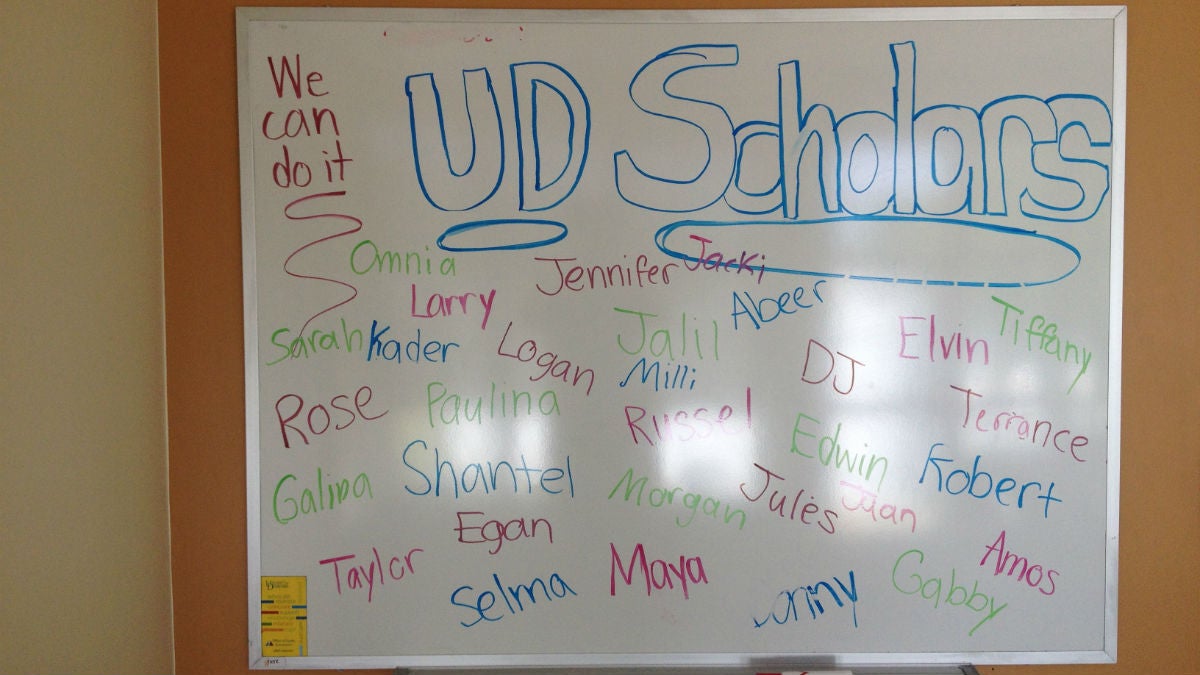 We
can
do it
UD Scholars
Omnia Jennifer Jacki
Larry Abeer
Sarah Kader Logan Jalil Elvin Tiffany
Milli DJ
Rose Paulina Russel Terrance
Galina Shantel Edwin Robert
Morgan Jules Juan
Egan
Taylor Maya Amos
Selma Gabby